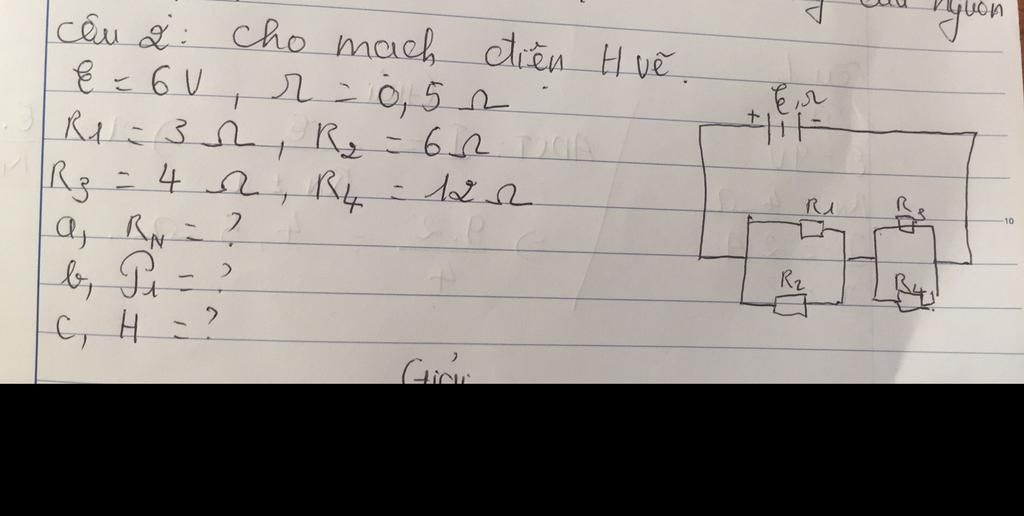 nguồn
câu 2: cho mạch điện H vẽ.
ξ = 6V, r = 0,5 Ω
R1 = 3 Ω, R2 = 6Ω
R3 = 4 Ω, R4 = 12Ω
a, RN = ?
b, P1 = ?
c, H = ?
Giải
ξ, r
+ -
R1
R3
R2
R4
10